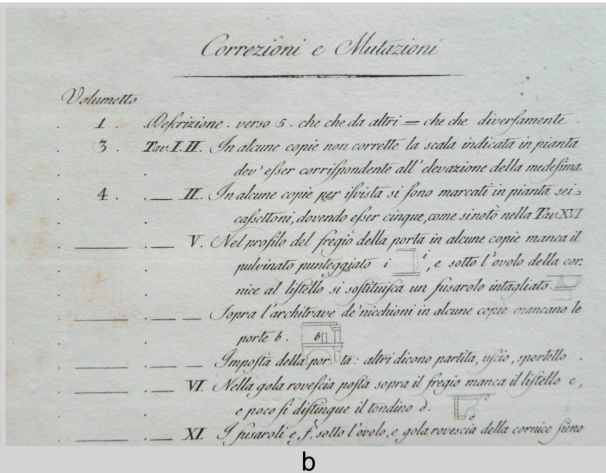 Correzioni e Mutazioni
Volumetto
. 1 . Descrizione . verso 5 . che che da altri = che che diversamente .
. 3 . Tav. I. II. In alcune copie non corrette la scala indicata in pianta
. dev' esser corrispondente all' elevazione della medesima.
. 4 . __ II. In alcune copie per isvista si sono marcati in pianta sei
. cassettoni, dovendo esser cinque, come si notò nella Tav. XVI
___ . __ V. Nel profilo del fregio della porta in alcune copie manca il
. pulvinato punteggiato i i, e sotto l'ovolo della cor:
. nice al listello si sostituisca un fusarolo intagliato
___ . __ __ Sopra l'architrave de' nicchioni in alcune copie mancano le
. porte b . b
___ . __ __ Imposta della por ta : altri dicono partita, uscio, sportello .
___ . __ VI. Nella gola rovescia posta sopra il fregio manca il listello c,
. e poco si distingue il tondino d.
___ . __ XI. I fusaroli e, f, sotto l'ovolo, e gola rovescia della cornice sieno
b